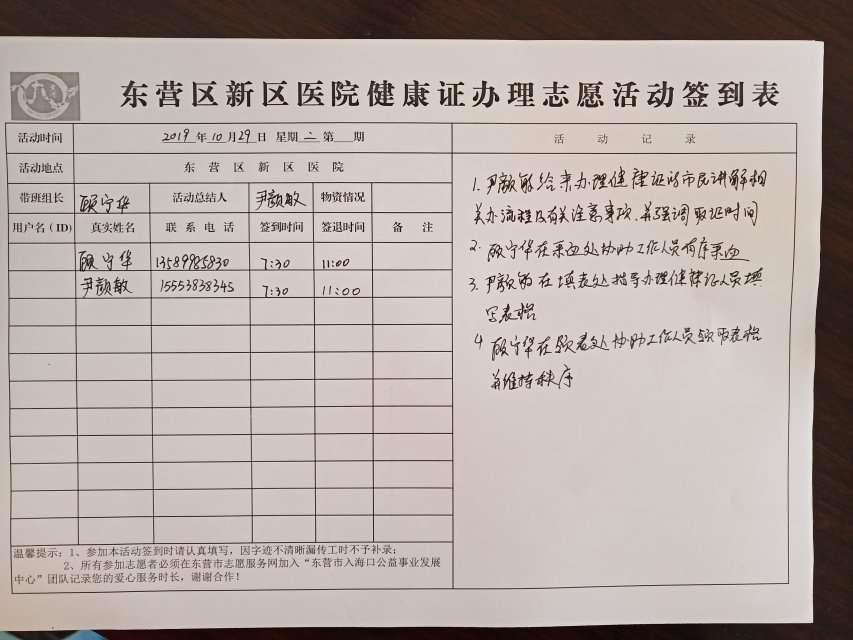 东营区新区医院健康证办理志愿活动签到表
活动时间 2019年10月29日 星期二 第 期
活动地点 东营区新区医院
带班组长 顾宁华 活动总结人 尹颜敏 物资情况
用户名(ID) 真实姓名 联系电话 签到时间 签退时间 备注
顾宁华 13589985830 7:30 11:00
尹颜敏 15553838345 7:30 11:00
温馨提示：1、参加本活动签到时请认真填写，因字迹不清晰漏传工时不予补录；
2、所有参加志愿者必须在东营市志愿服务网加入“东营市入海口公益事业发展
中心”团队记录您的爱心服务时长，谢谢合作！
活动记录
1. 尹颜敏给来办理健康证的市民讲解相
关办流程及有关注意事项，并强调取证时间
2. 顾宁华在采血处协助工作人员有序采血
3. 尹颜敏在填表处指导办理健康证人员填
写表格
4 顾宁华在领表处协助工作人员领取表格
并维持秩序